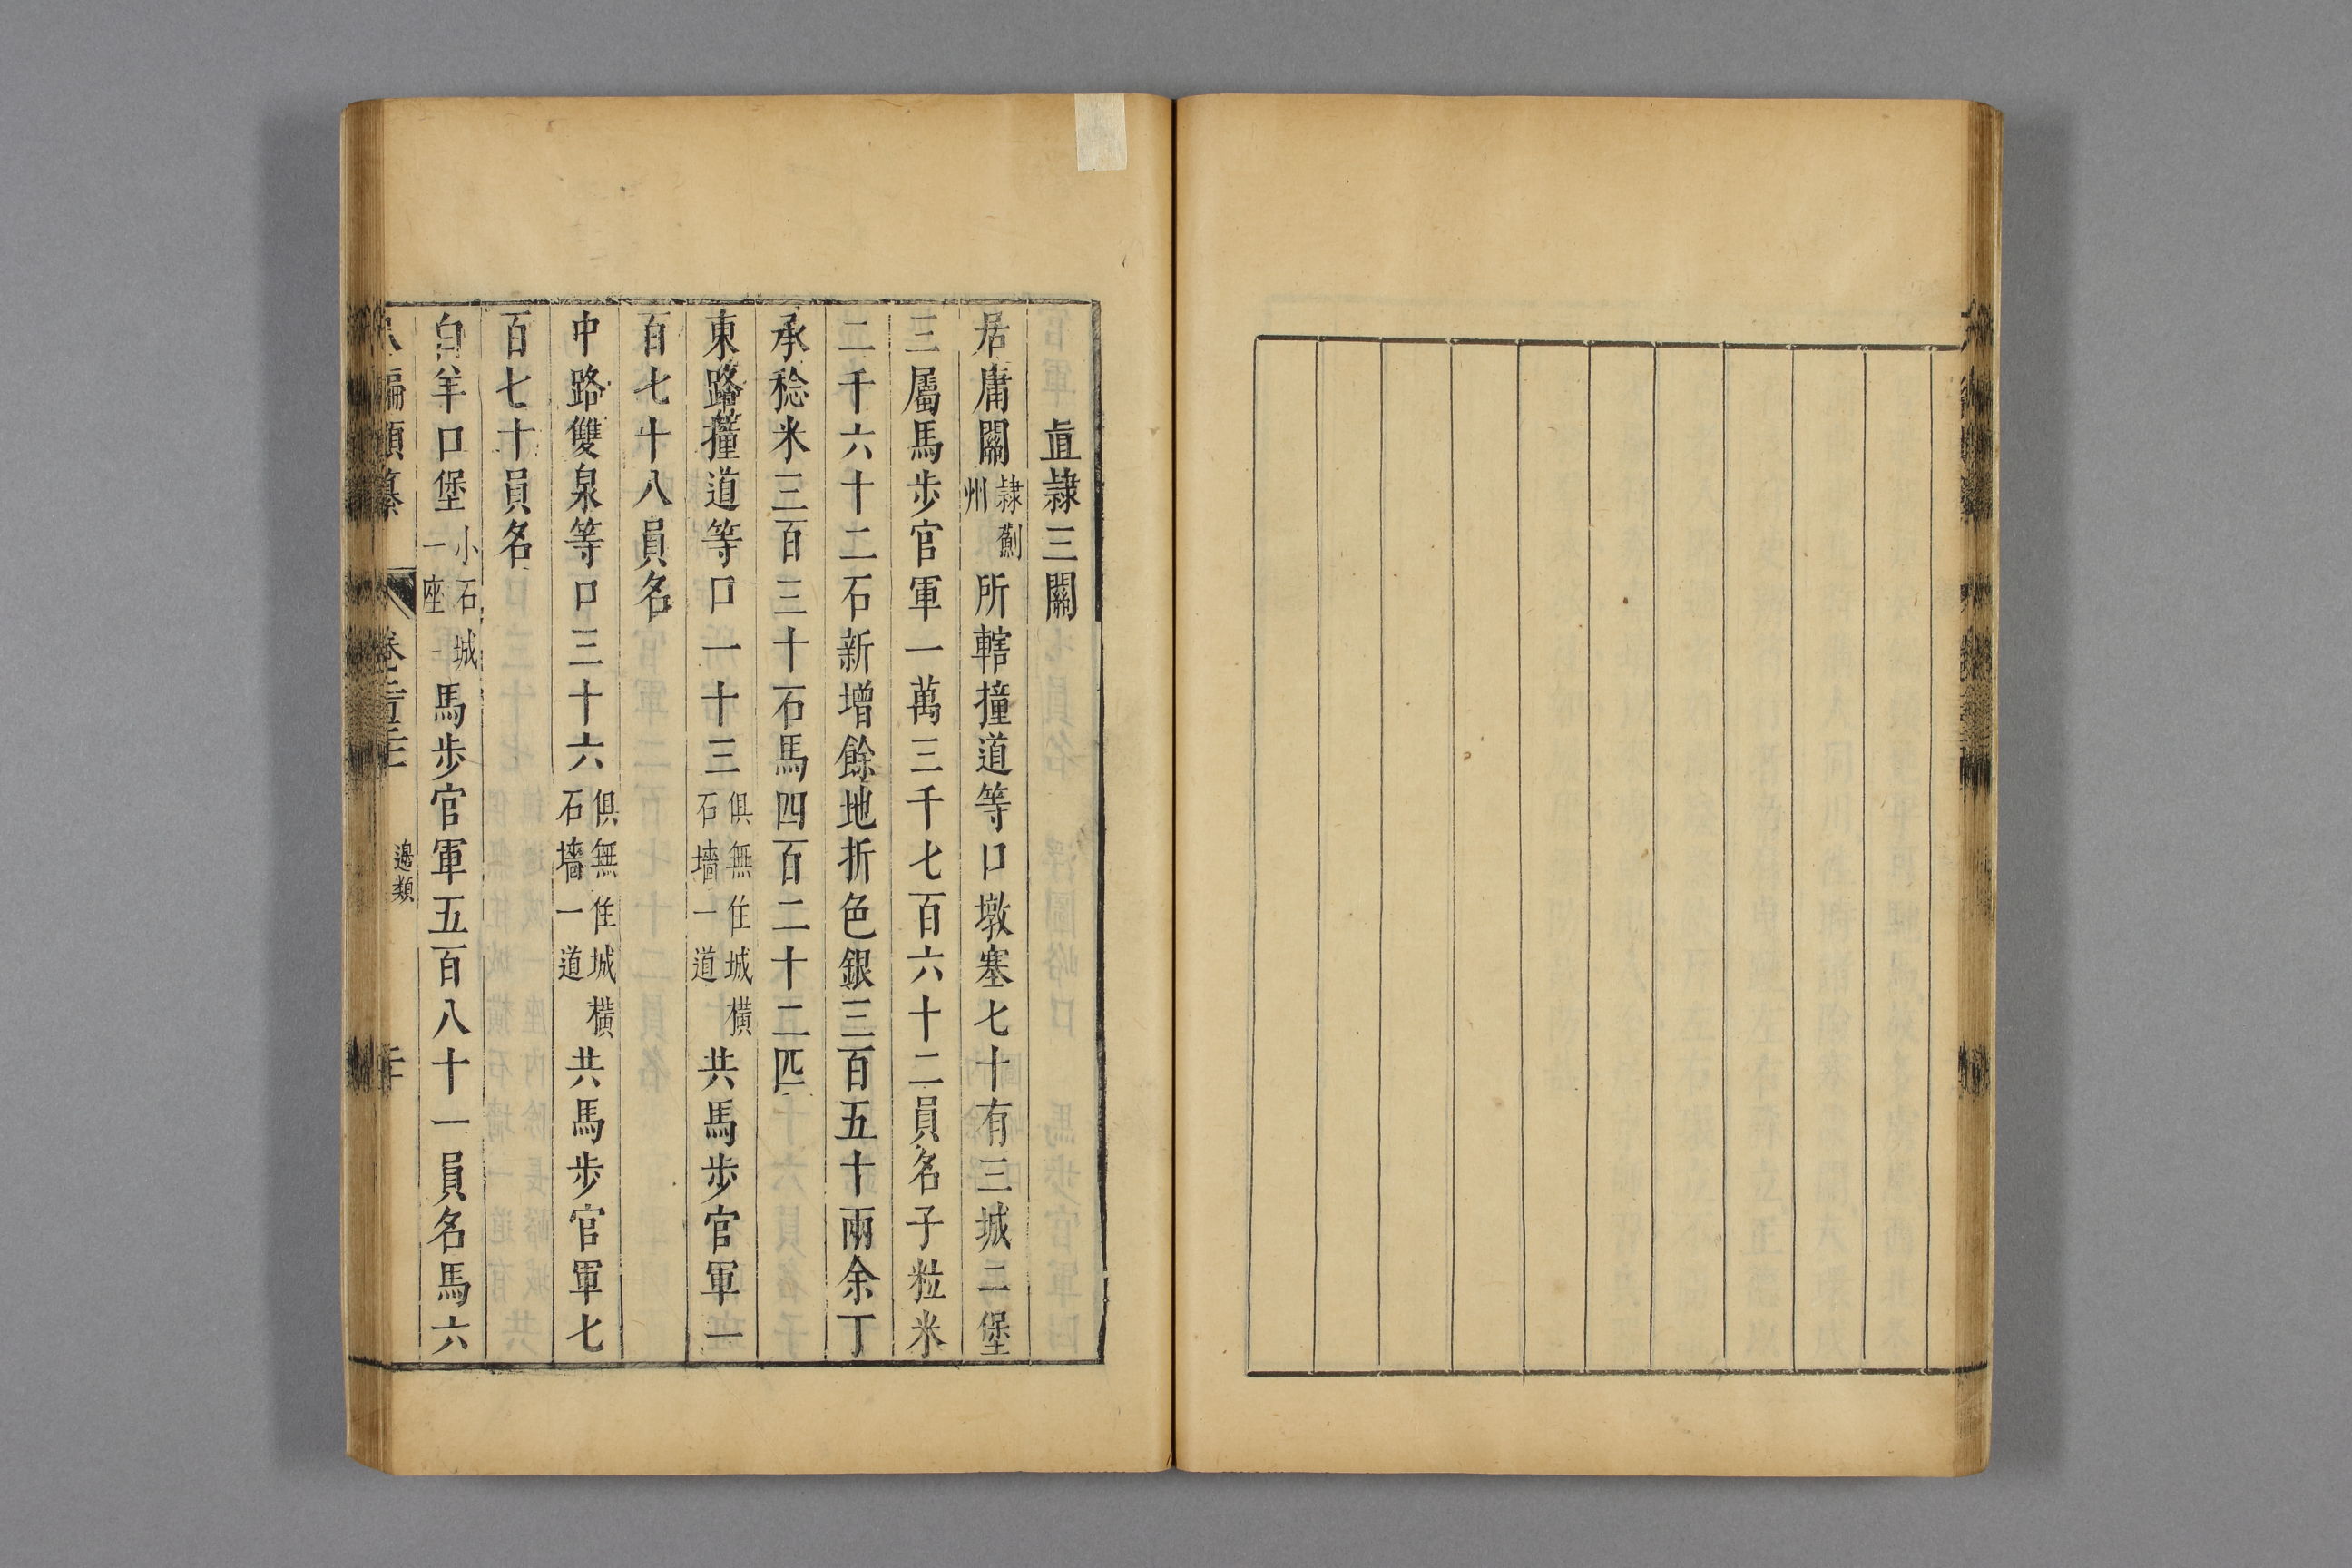 直隷三關
居庸關隷薊州所轄撞道等口墩塞七十有三城二堡
三屬馬步官軍一萬三千七百六十二員名子粒米
二千六十二石新增餘地折色銀三百五十兩余丁
承稔米三百三十石馬四百二十二匹
東路撞道等口一十三俱無住城橫石墻一道共馬步官軍一
百七十八員名
中路雙泉等口三十六俱無住城橫石墻一道共馬步官軍七
百七十員名
白羊口堡小石城一座馬步官軍五百八十一員名馬六
編類纂
邊類